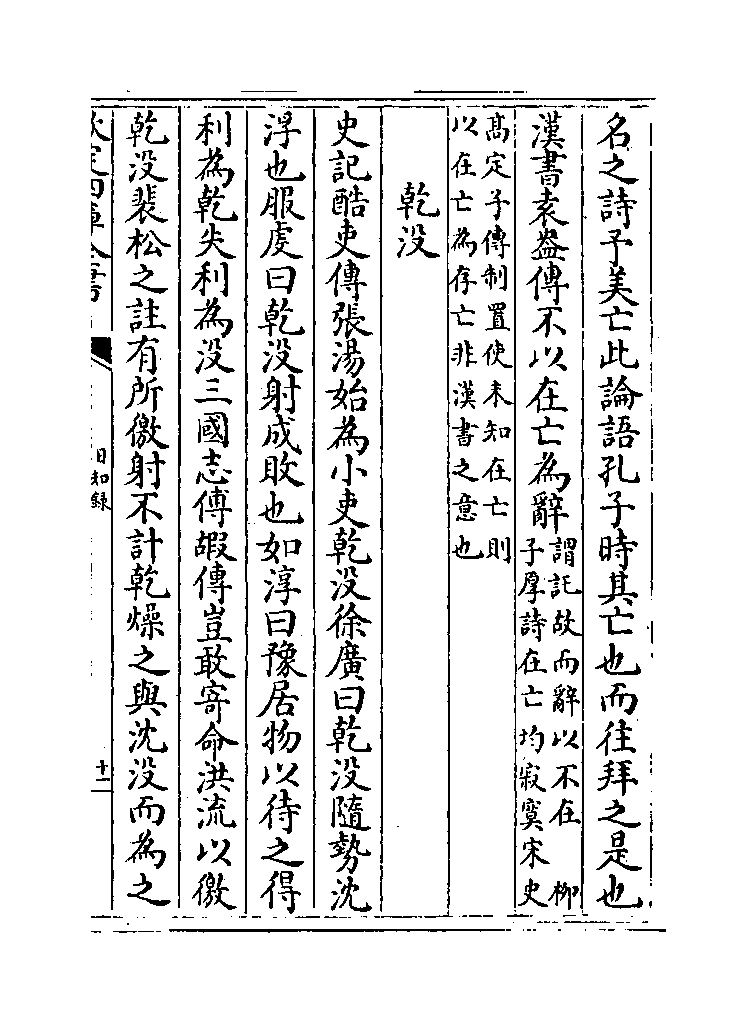 名之詩子美亡此論語孔子時其亡也而往拜之是也
漢書袁盎傳不以在亡為辭
謂託故而辭以不在　柳
子厚詩在亡均寂寞宋史
髙定子傳制置使未知在亡則
以在亡為存亡非漢書之意也
乾没
史記酷吏傳張湯始為小吏乾没徐廣曰乾没隨勢沈
浮也服虔曰乾没射成敗也如淳曰豫居物以待之得
利為乾失利為没三國志傅嘏傳豈敢寄命洪流以徼
乾没裴松之註有所徼射不計乾燥之與沈没而為之
欽定四庫全書
日知録